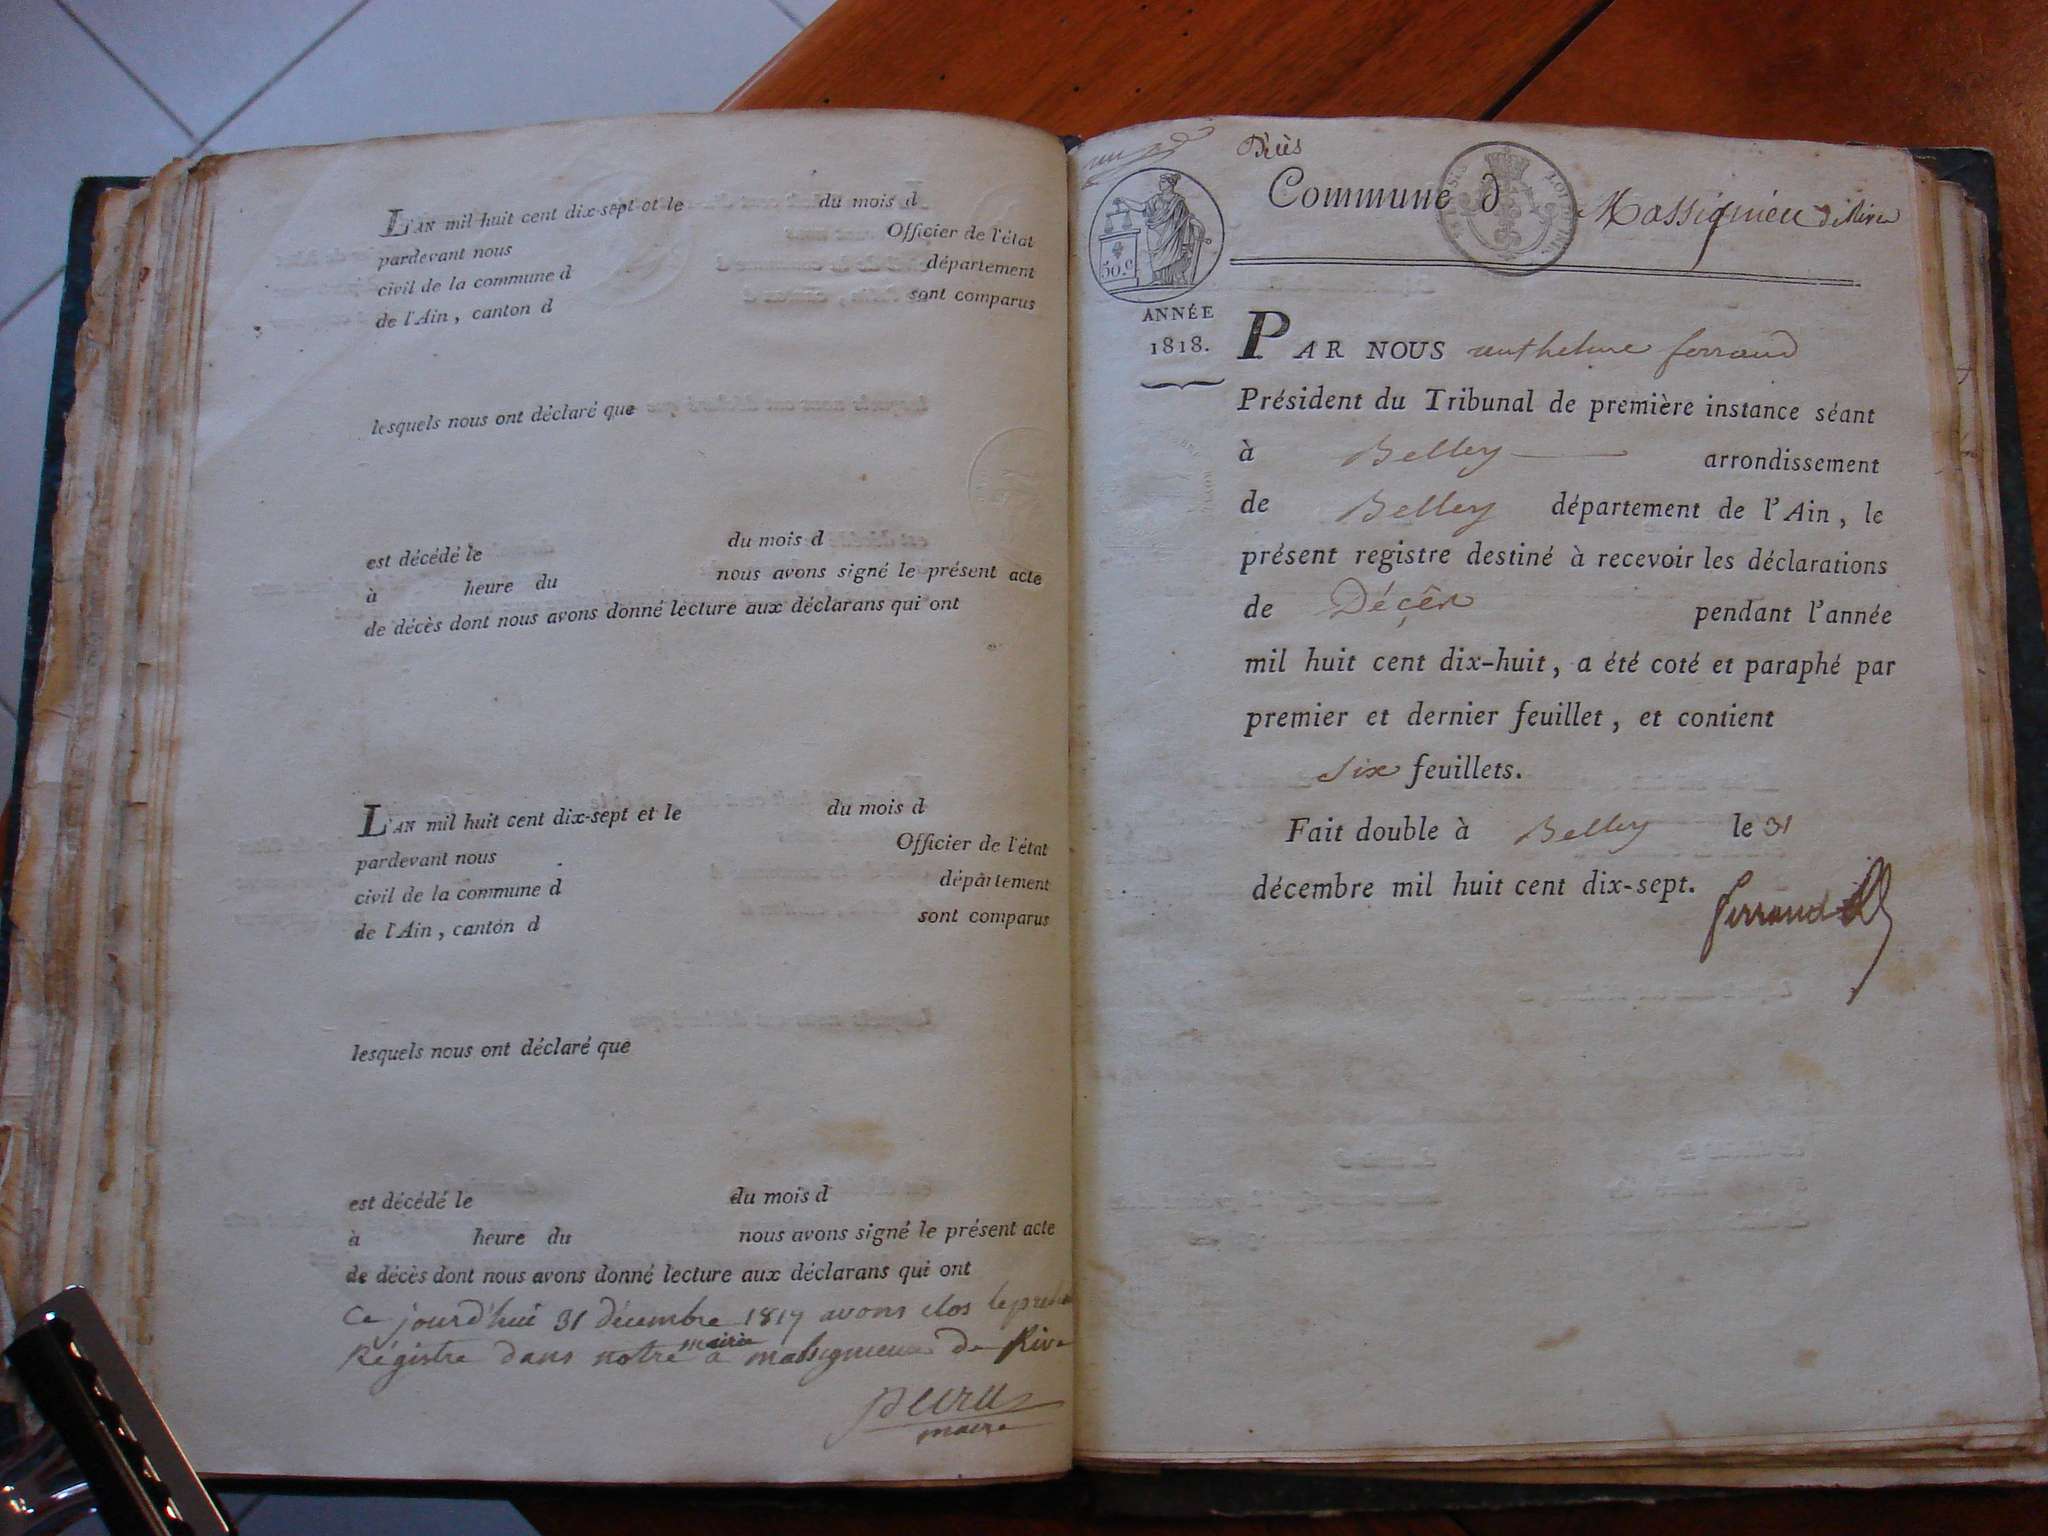 L'AN mil huit cent dix-sept et le du mois d
pardevant nous Officier de l'état
civil de la commune d département
de l'Ain, canton d sont comparus
lesquels nous ont déclaré que
est décédé le du mois d
à heure du nous avons signé le présent acte
de décès dont nous avons donné lecture aux déclarans qui ont
L'AN mil huit cent dix-sept et le du mois d
pardevant nous Officier de l'état
civil de la commune d département
de l'Ain, canton d sont comparus
lesquels nous ont déclaré que
est décédé le du mois d
à heure du nous avons signé le présent acte
de décès dont nous avons donné lecture aux déclarans qui ont
Ce jourd'hui 31 décembre 1817 avons clos le
Régistre dans notre mairie a massignieux de Rive
maire
50.c
Commune d Massignieu de Rive
ANNÉE
1818.
PAR NOUS anthelme ferrand
Président du Tribunal de première instance séant
à Belley arrondissement
de Belley département de l'Ain, le
présent registre destiné à recevoir les déclarations
de Décès pendant l'année
mil huit cent dix-huit, a été coté et paraphé par
premier et dernier feuillet, et contient
six feuillets.
Fait double à Belley le 31
décembre mil huit cent dix-sept.
ferrand